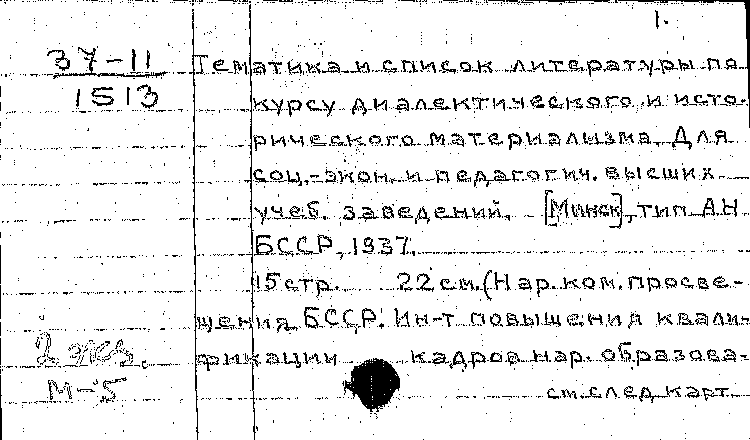 1.
37-11
1513
Тематика и список литературы по
курсу диалектического и исто-
рического материализма. Для
соц.-экон. и педагогич. высших
учеб. заведений. [Минск], тип. АН
БССР, 1937.
15 стр. 22 см. (Нар. ком. просве-
щения БССР. Ин-т повышения квали-
фикации кадров нар. образова-
см. след. карт.
2 экз.
М-5